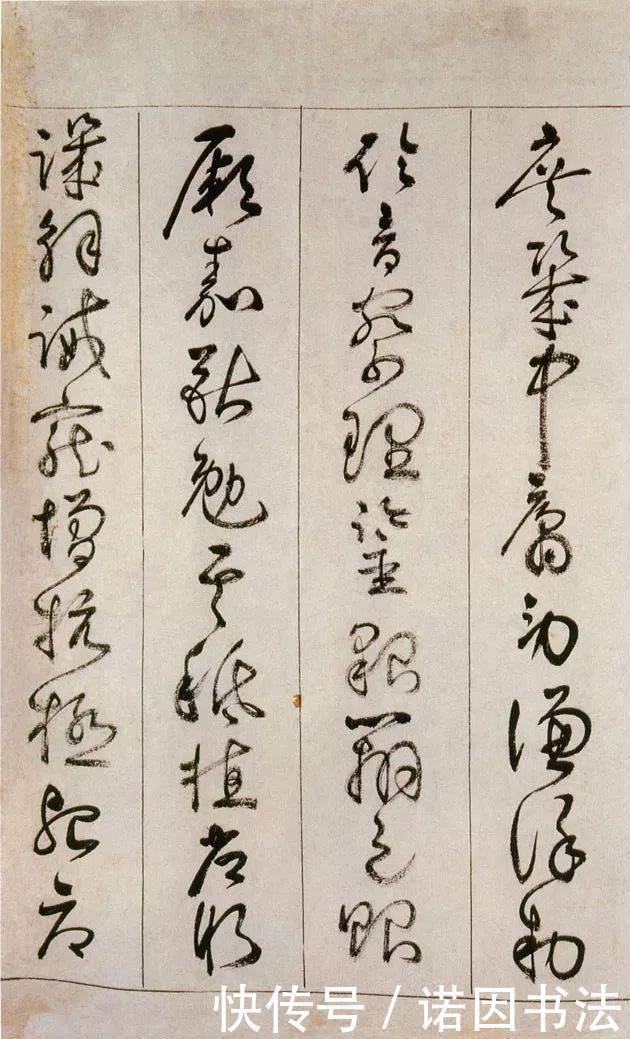 庶幾中庸勞謙謹勑
聆音察理鑒貌辨色貽
厥嘉猷勉其祗植省躬
譏誡寵增抗極殆辱
快传号 / 诺因书法